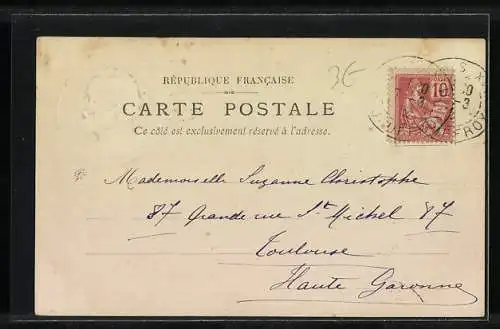 3€
RÉPUBLIQUE FRANÇAISE
CARTE POSTALE
Ce côté est exclusivement réservé à l'adresse.
10
Mademoiselle Suzanne Christophe
87 Grande rue St Michel 87
Toulouse
Haute Garonne